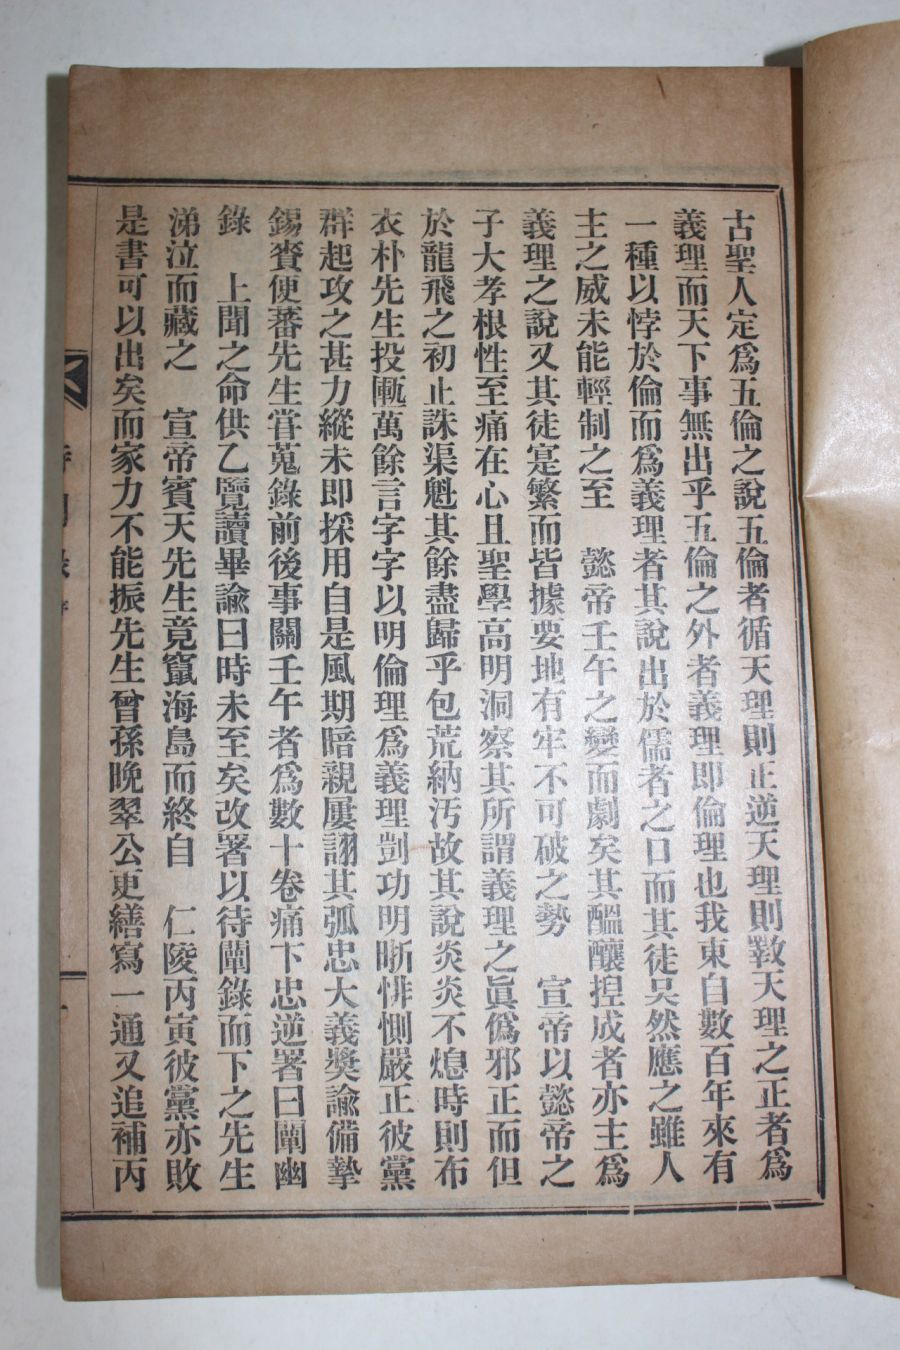 古聖人定爲五倫之說五倫者循天理則正逆天理則斁天理之正者爲
義理而天下事無出乎五倫之外者義理即倫理也我東自數百年來有
一種以悖於倫而爲義理者其說出於儒者之口而其徒吳然應之雖人
主之威未能輕制之至　懿帝壬午之變而劇矣其醞釀捏成者亦主爲
義理之說又其徒寔繁而皆據要地有牢不可破之勢　宣帝以懿帝之
子大孝根性至痛在心且聖學高明洞察其所謂義理之眞僞邪正而但
於龍飛之初止誅渠魁其餘盡歸乎包荒納汚故其說炎炎不熄時則布
衣朴先生投匭萬餘言字字以明倫理爲義理剴功明晣悱惻嚴正彼黨
群起攻之甚力縱未即採用自是風期暗親屢詡其弧忠大義奬諭備摯
錫賚便蕃先生甞蒐錄前後事關壬午者爲數十卷痛下忠逆署曰闡幽
錄　上聞之命供乙覽讀畢諭曰時未至矣改署以待闡錄而下之先生
涕泣而藏之　宣帝賓天先生竟竄海島而終自　仁陵丙寅彼黨亦敗
是書可以出矣而家力不能振先生曾孫晩翠公更繕寫一通又追補丙